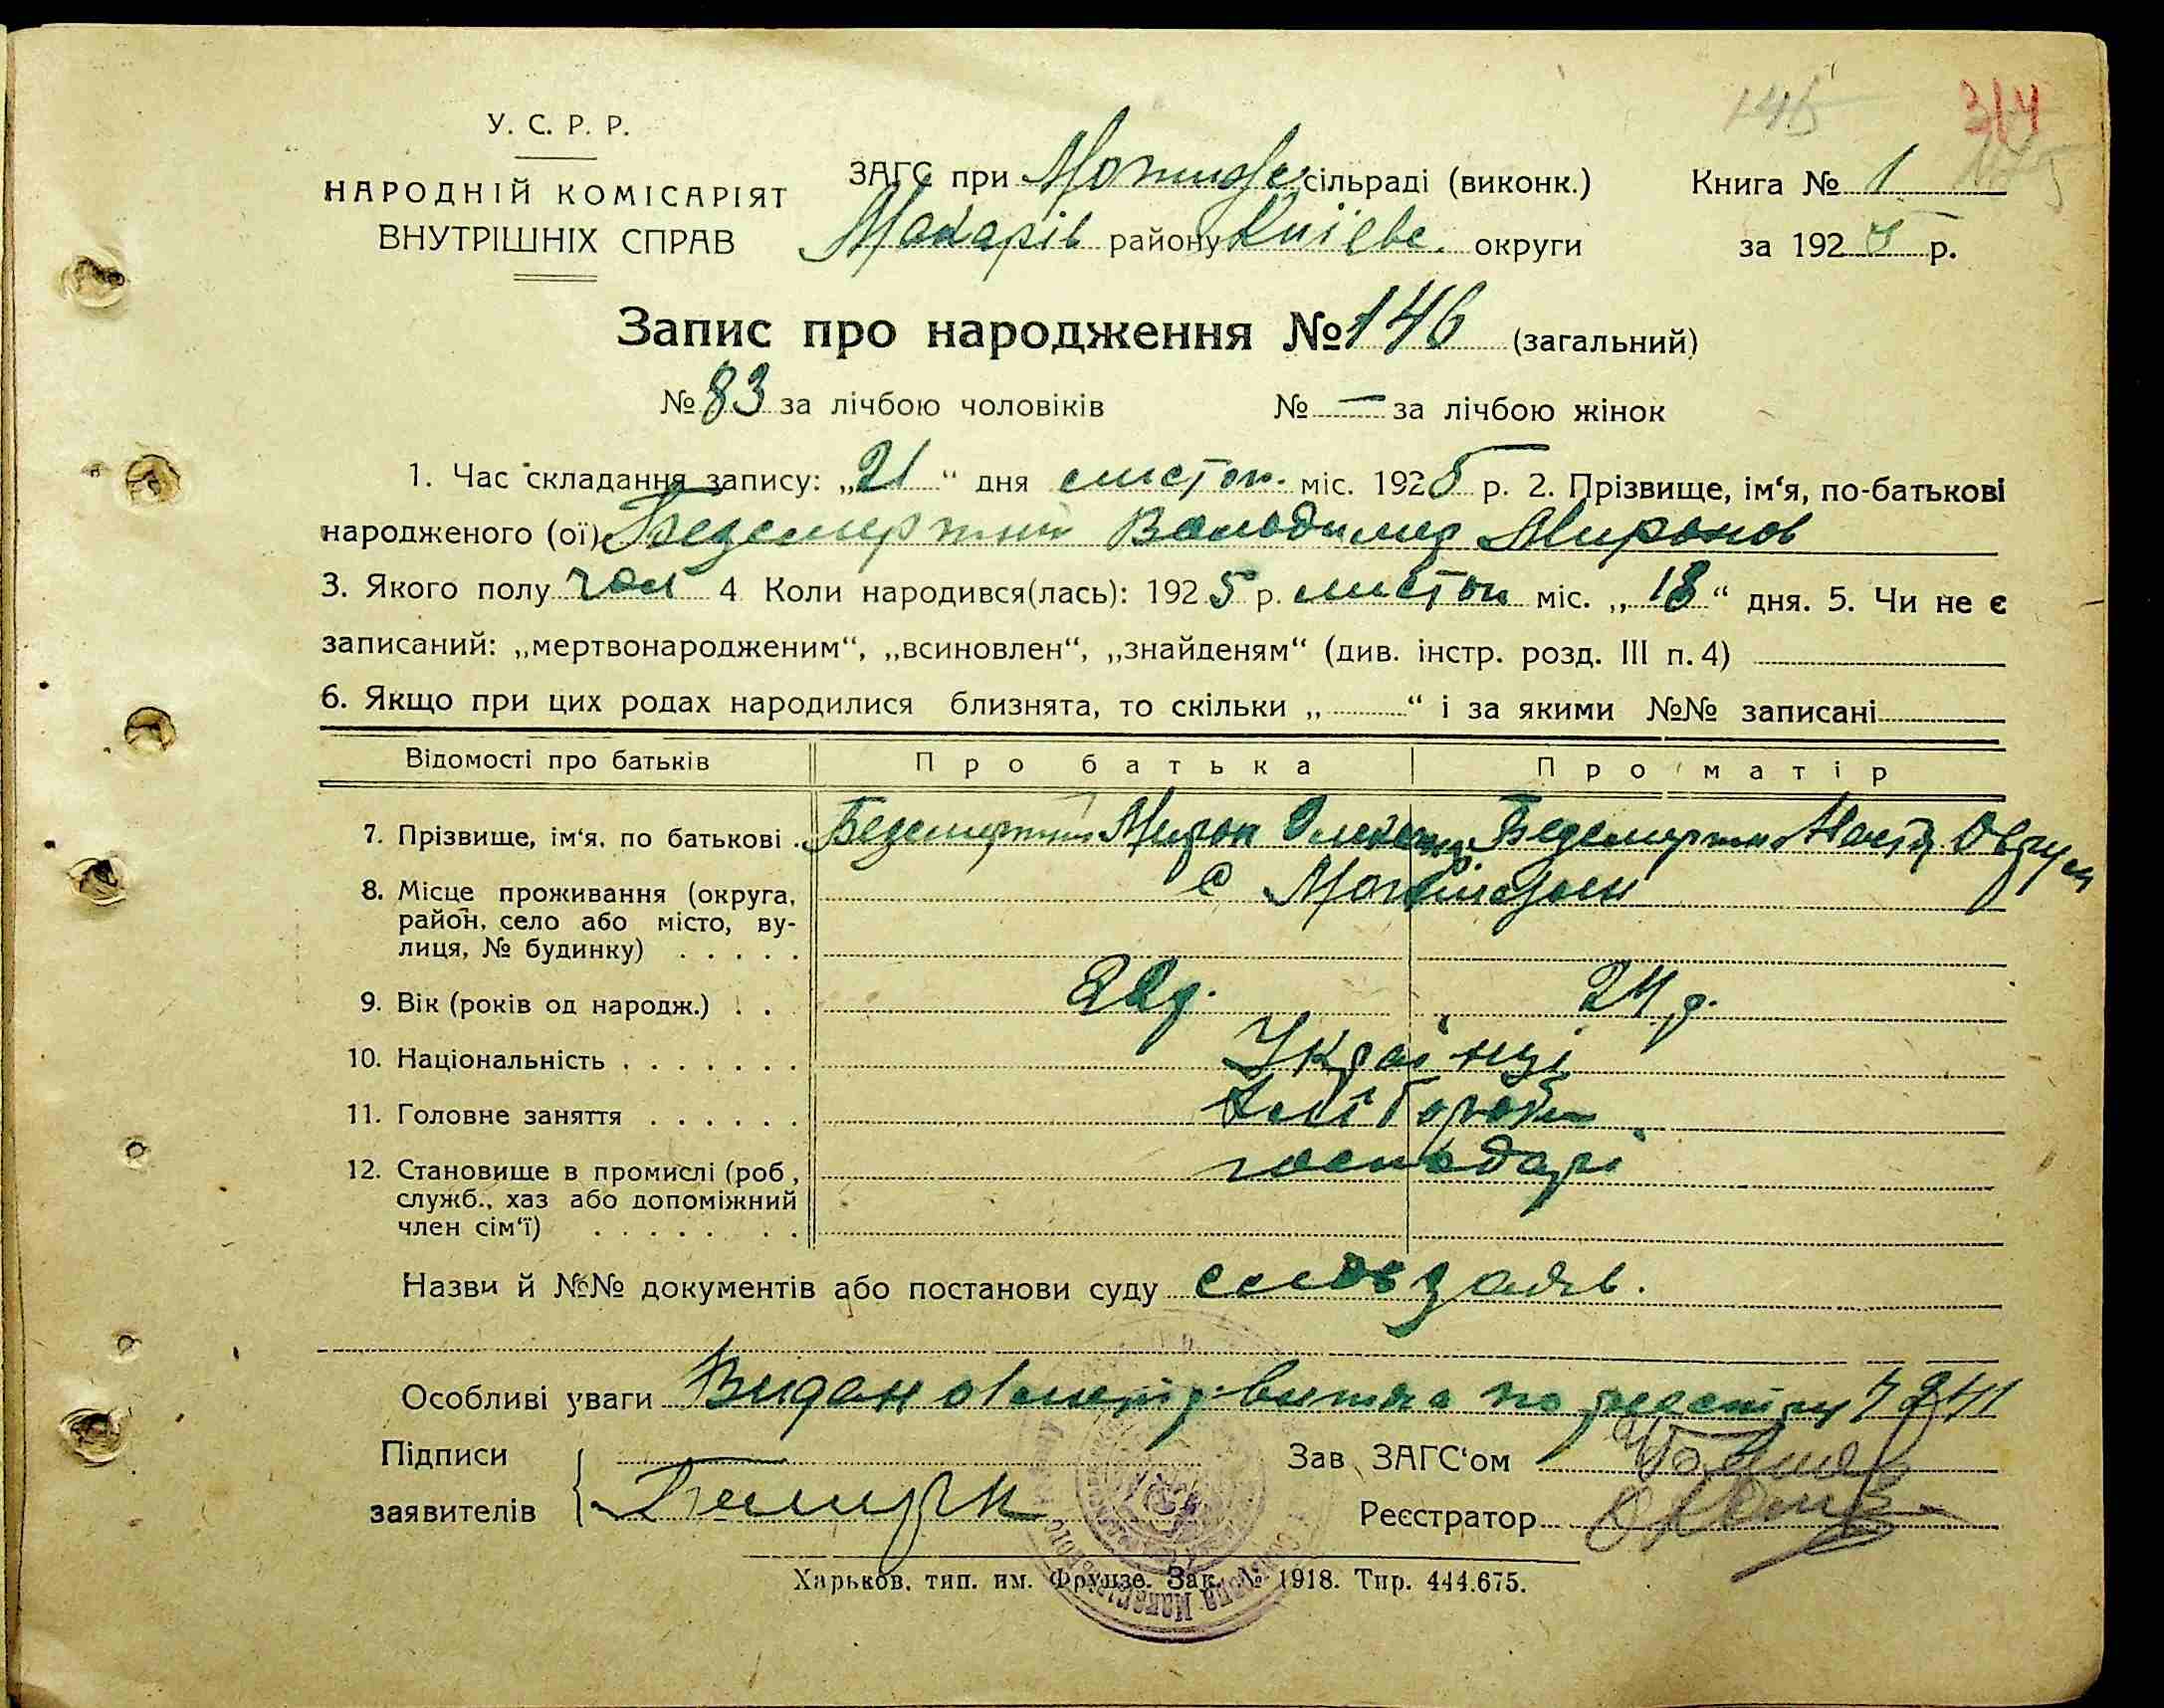 145
314
У. С. Р. Р.
НАРОДНІЙ КОМІСАРІЯТ
ВНУТРІШНІХ СПРАВ
ЗАГС при Мотижс сільраді (виконк.) Книга № 1
Макарів району Київс. округи за 1925 р.
Запис про народження № 146 (загальний)
№ 83 за лічбою чоловіків № — за лічбою жінок
1. Час складання запису: „21“ дня листоп. міс. 1925 р. 2. Прізвище, ім‘я, по-батькові
народженого (ої) Безсмертний Володимир Миронов
3. Якого полу чол 4 Коли народився(лась): 1925 р. листоп міс. „18“ дня. 5. Чи не є
записаний: „мертвонародженим“, „всиновлен“, „знайденям“ (див. інстр. розд. III п. 4)
6. Якщо при цих родах народилися близнята, то скільки „ “ і за якими №№ записані
Відомості про батьків Про батька Про матір
7. Прізвище, ім‘я, по батькові . Безсмертний Мирон Олександр. Безсмертна Настя
8. Місце проживання (округа, с Мотижин
район, село або місто, ву-
лиця, № будинку) . . . . .
9. Вік (років од народж.) . . 22 р. 24 р.
10. Національність . . . . . . . Українці
11. Головне заняття . . . . . . Хлібороби
12. Становище в промислі (роб, господарі
служб., хаз або допоміжний
член сім‘ї) . . . . . . .
Назви й №№ документів або постанови суду слов заяв.
Особливі уваги Видан витяг по реєстру
Підписи Зав. ЗАГС‘ом
заявителів Реєстратор
Харьков, тип. им. Фрунзе. Зак. № 1918. Тир. 444.675.